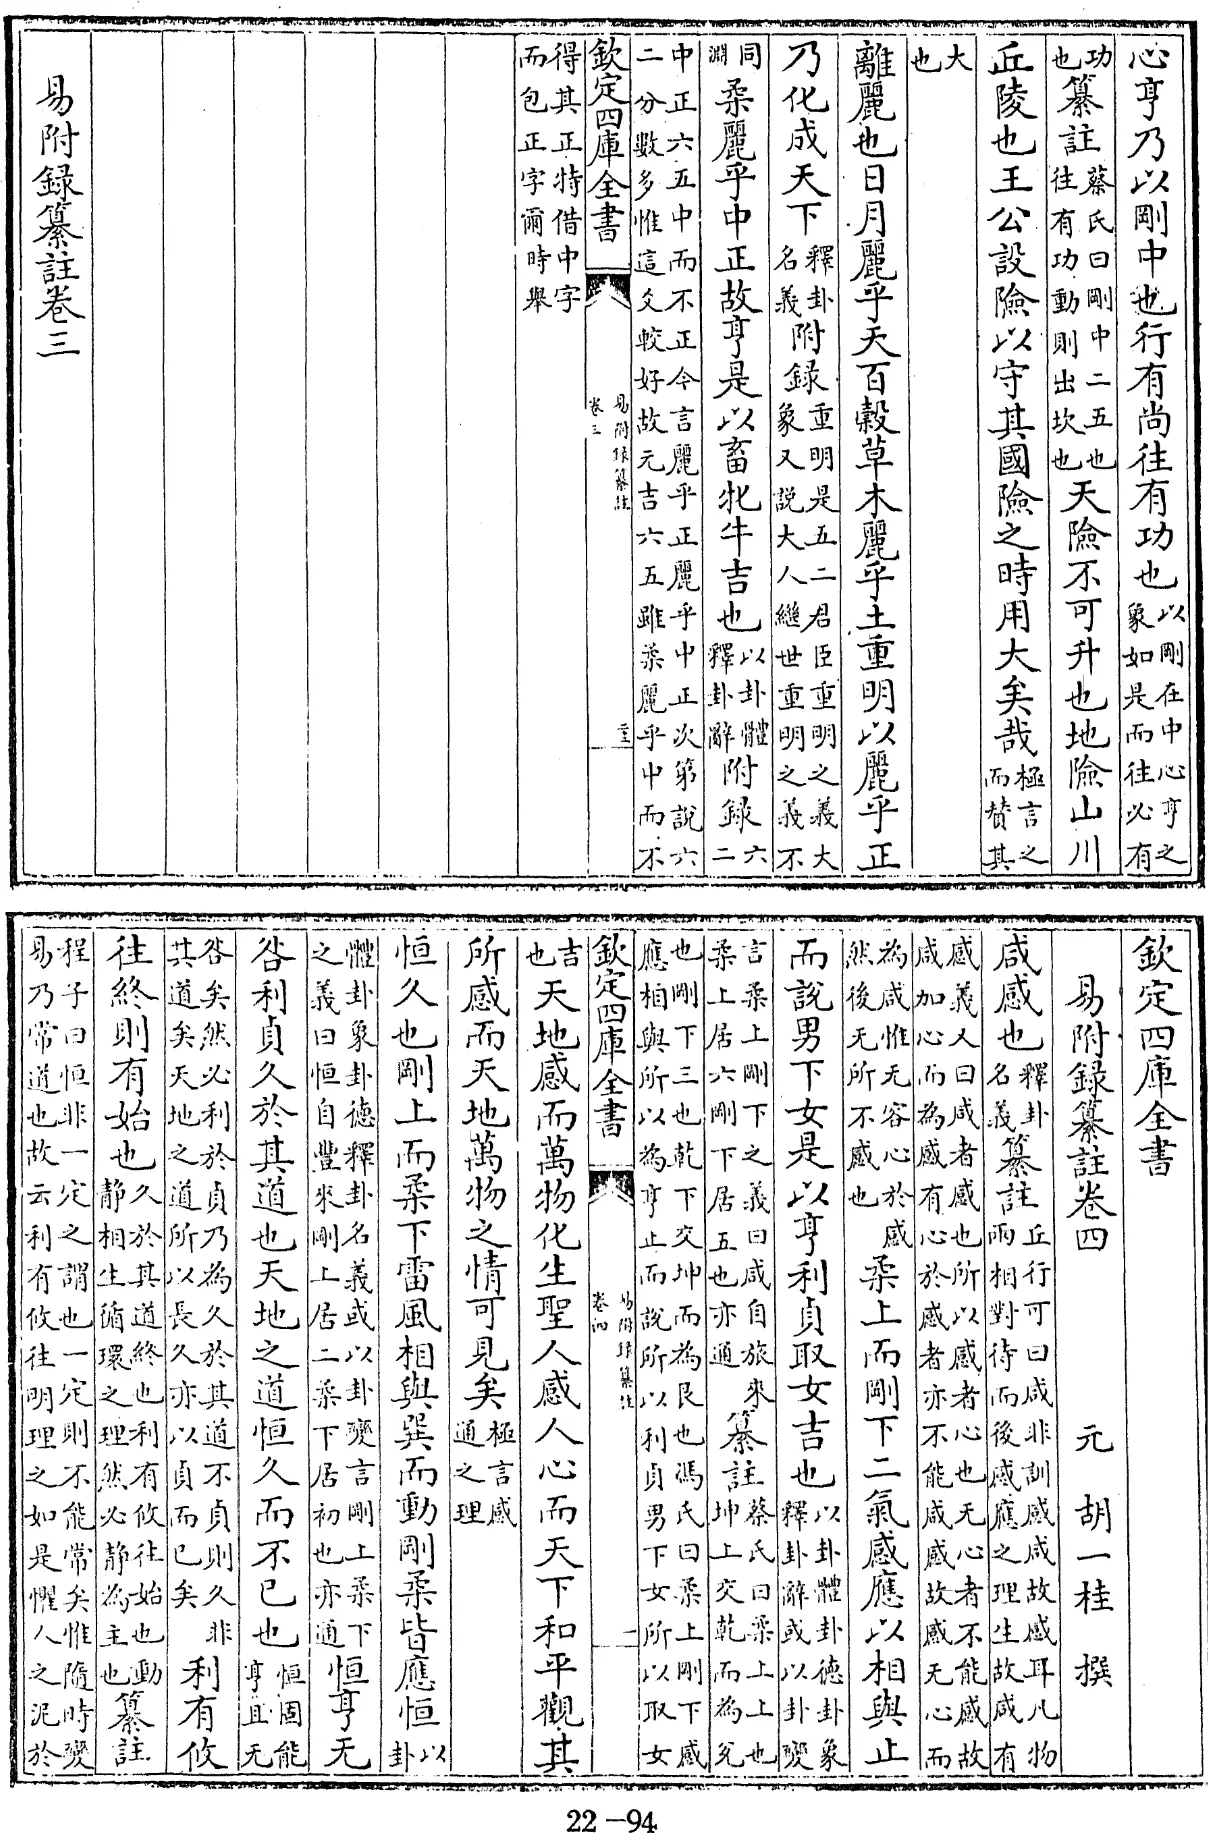 心亨乃以剛中也行有尚往有功也以剛在中心亨之象如是而往必有
功也纂註蔡氏曰剛中二五也往有功動則出坎也天險不可升也地險山川
丘陵也王公設險以守其國險之時用大矣哉極言之而賛其
大也
離麗也日月麗乎天百穀草木麗乎土重明以麗乎正
乃化成天下釋卦名義附録重明是五二君臣重明之義大象又説大人繼世重明之義不
同淵柔麗乎中正故亨是以畜牝牛吉也以卦體釋卦辭附録六二
中正六五中而不正今言麗乎正麗乎中正次第説六二分數多惟這爻較好故元吉六五雖柔麗乎中而不
欽定四庫全書
易附録纂註
卷三
得其正特借中字而包正字爾時舉
易附録纂註卷三
欽定四庫全書
易附録纂註卷四
元 胡一桂 撰
咸感也釋卦名義纂註丘行可曰咸非訓感咸故感耳凡物兩相對待而後感應之理生故咸有
感義又曰咸者感也所以感者心也无心者不能感故咸加心而為感有心於感者亦不能咸感故感无心而
為咸惟无容心於感然後无所不感也柔上而剛下二氣感應以相與止
而說男下女是以亨利貞取女吉也以卦體卦德卦象釋卦辭或以卦變
言柔上剛下之義曰咸自旅來柔上居六剛下居五也亦通纂註蔡氏曰柔上上也坤上交乾而為兌
也剛下三也乾下交坤而為艮也馮氏曰柔上剛下感應相與所以為亨止而說所以利貞男下女所以取女
欽定四庫全書
易附録纂註
卷四
一
吉也天地感而萬物化生聖人感人心而天下和平觀其
所感而天地萬物之情可見矣極言感通之理
恒久也剛上而柔下雷風相與巽而動剛柔皆應恒以卦
體卦象卦德釋卦名義或以卦變言剛上柔下之義曰恒自豐來剛上居二柔下居初也亦通恒亨无
咎利貞久於其道也天地之道恒久而不已也恒固能亨且无
咎矣然必利於貞乃為久於其道不貞則久非其道矣天地之道所以長久亦以貞而已矣利有攸
往終則有始也久於其道終也利有攸往始也動静相生循環之理然必静為主也纂註
程子曰恒非一定之謂也一定則不能常矣惟隨時變易乃常道也故云利有攸往明理之如是懼人之泥於
22-94